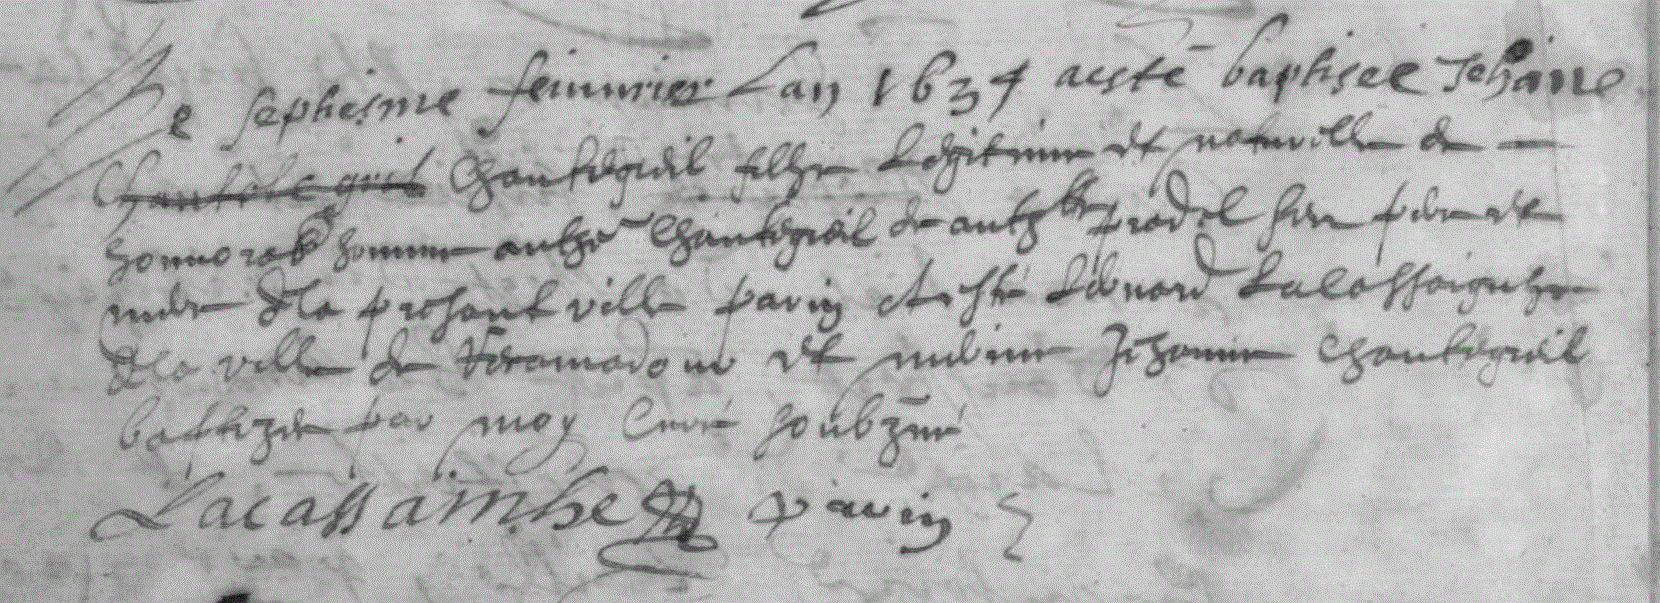 Le septiesme feinvrier Lan 1634 aesté baptisee Jehãne
Chantegreil Chantegreil filhe Legitime et naturelle de —
honnorab homme anthe Chantegreil de anth pradel sien pere et
mere dla presant ville parin Lienard Lalassaignhe
dla ville de et mérine Jehanne Chantegreil
batizée par moy Curé soubzné
Lacassaimhe parin